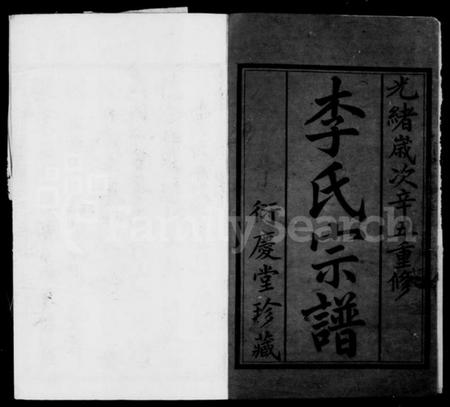 光緒歲次辛丑重修
李氏宗譜
衍慶堂珍藏
FamilySearch